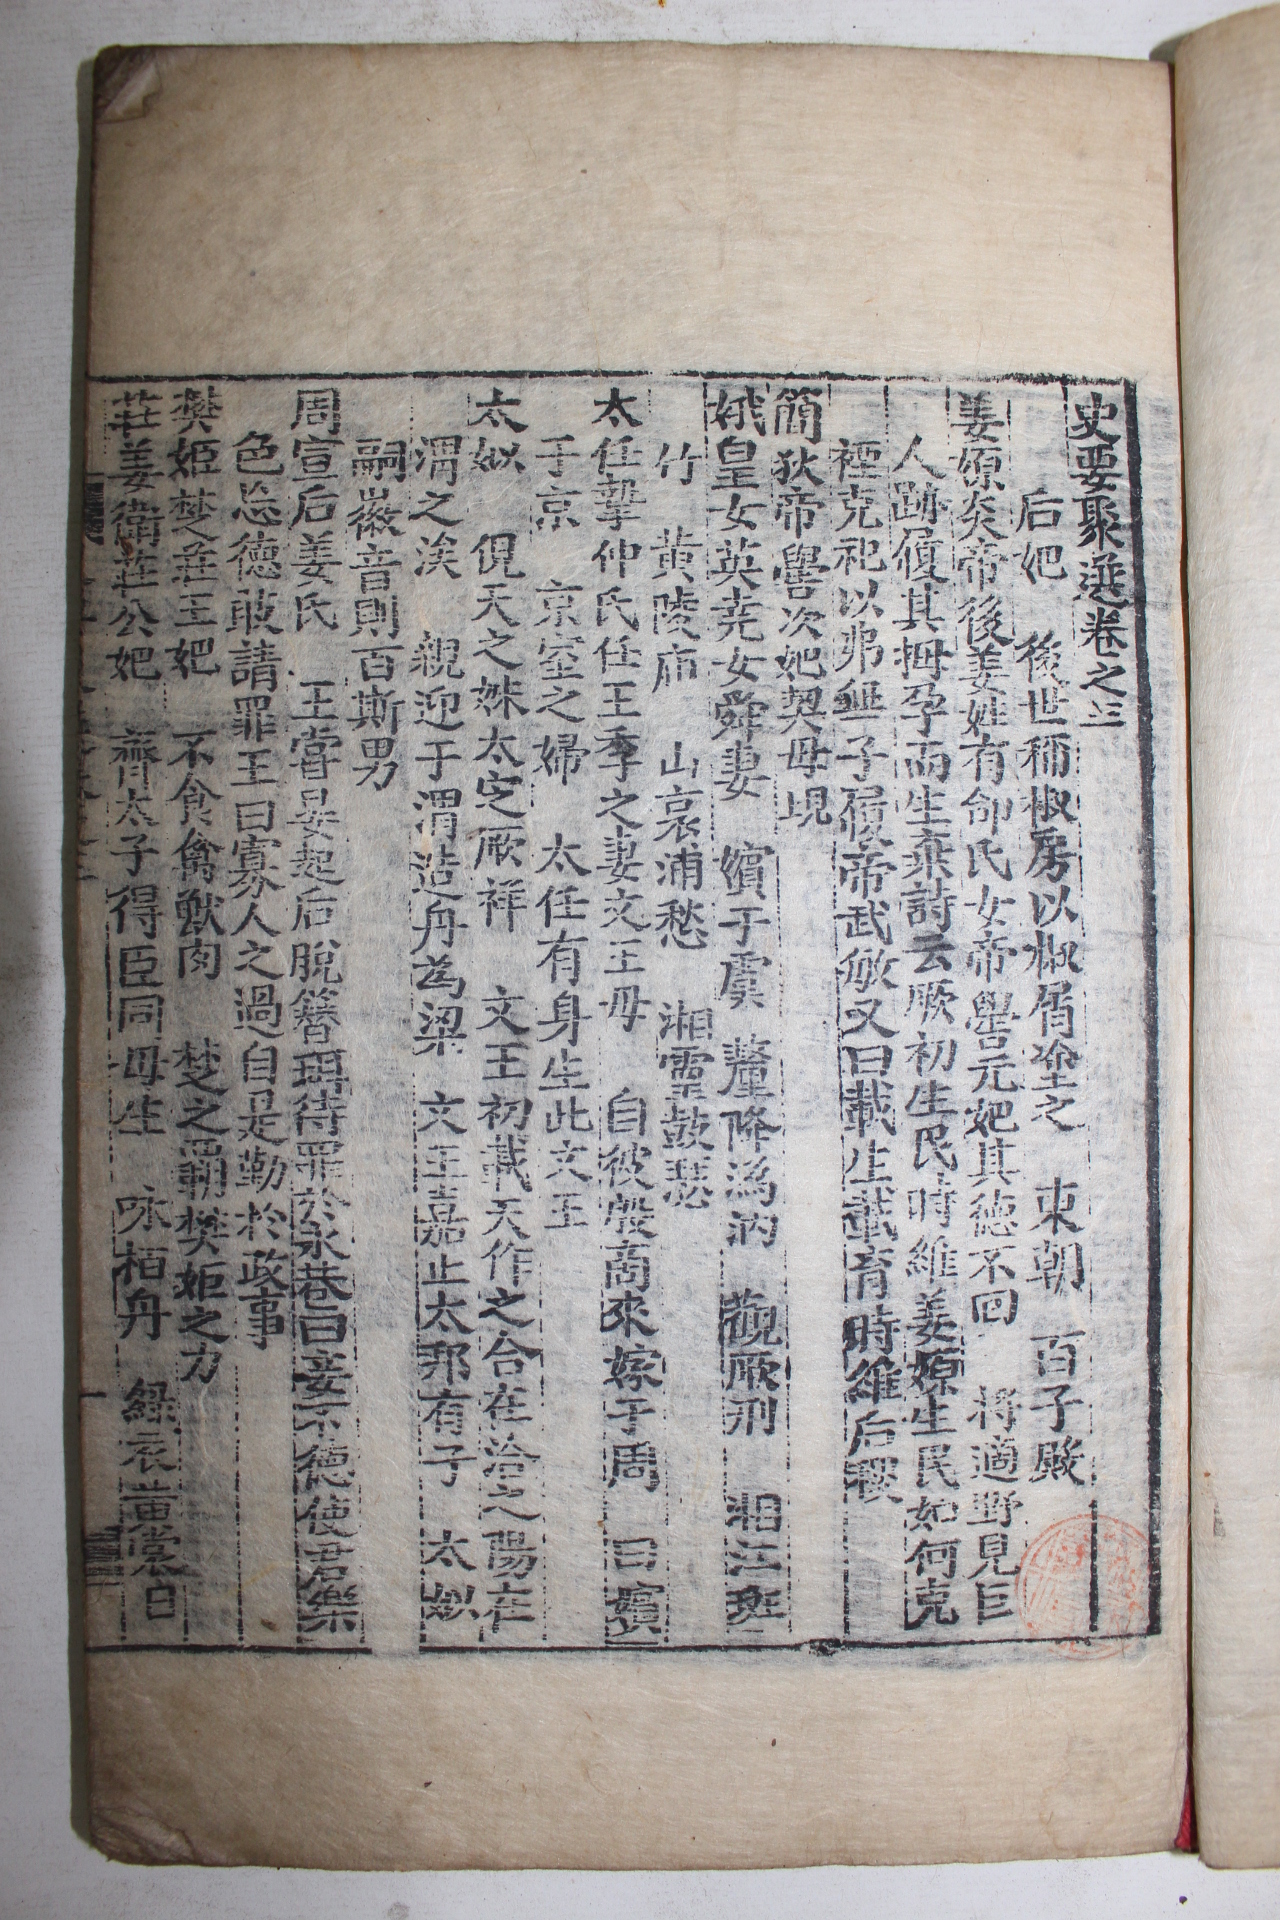 史要聚選卷之三
后妃 後世稱椒房以椒屑塗之 東朝 百子殿
姜嫄炎帝後姜姓有邰氏女帝嚳元妃其德不回 將適野見巨
人跡履其拇孕而生棄詩云厥初生民時維姜嫄生民如何克
禋克祀以弗無子履帝武敏又曰載生載育時維后稷
簡狄帝嚳次妃契母
娥皇女英堯女舜妻 嬪于虞 釐降溈汭 觀厥刑 湘江斑
竹 黃陵庙 山哀浦愁 湘靈鼓瑟
太任摯仲氏任王季之妻文王母 自彼殷商來嫁于周 曰嬪
于京 京室之婦 太任有身生此文王
太姒 俔天之妹太定厥祥 文王初載天作之合在洽之陽在
渭之涘 親迎于渭造舟爲梁 文王嘉止太邦有子 太姒
嗣徽音則百斯男
周宣后姜氏 王嘗晏起后脫簪珥待罪於永巷曰妾不德使君樂
色忘德敢請罪王曰寡人之過自是勤於政事
樊姬楚莊王妃 不食禽獸肉 楚之覇樊姬之力
莊姜衛莊公妃 齊太子得臣同母生 咏栢舟 綠衣黃裳白